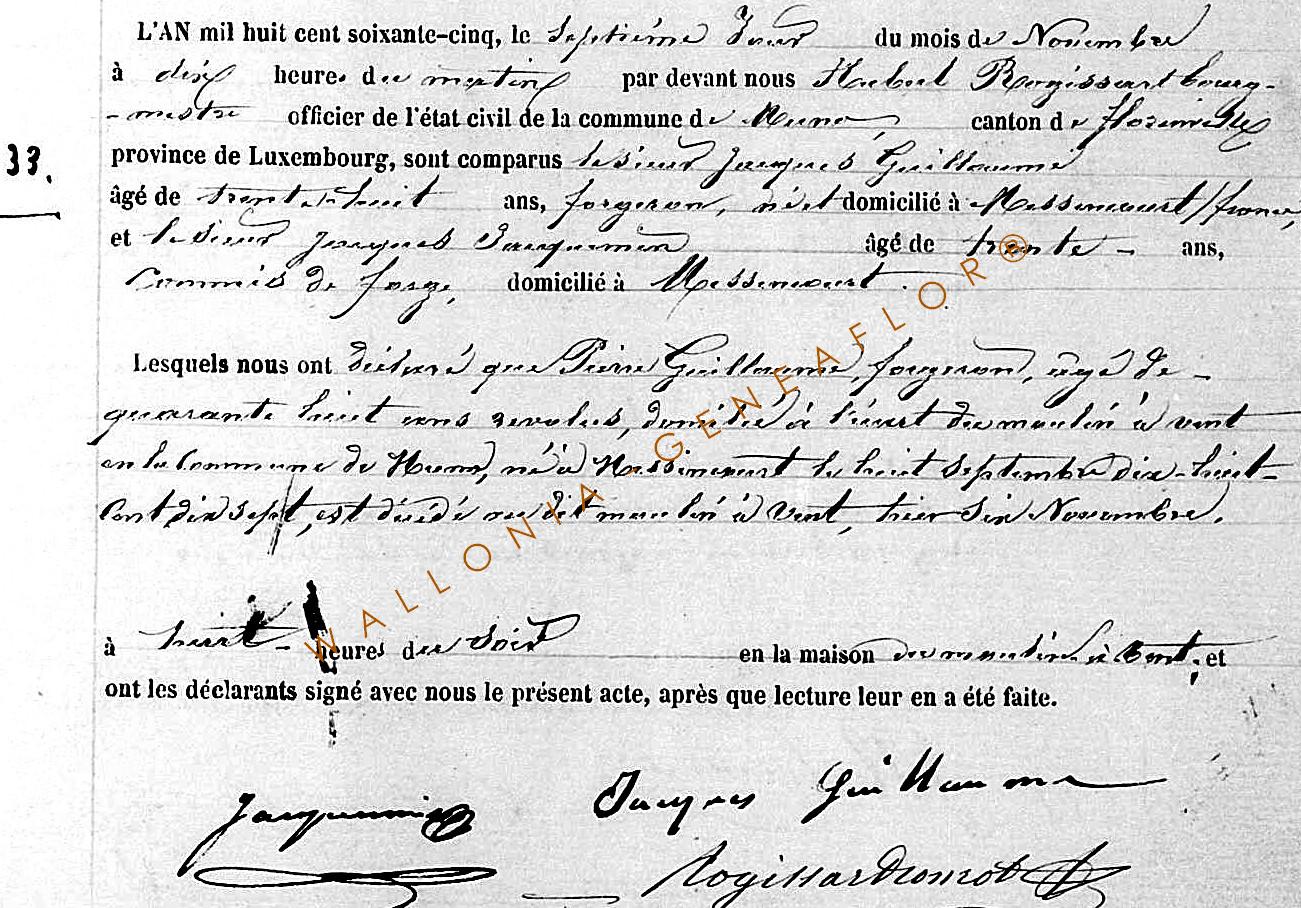 L'AN mil huit cent soixante-cinq, le Septième Jour du mois de Novembre
à dix heures du matin par devant nous Hubert Rogissart bourg-
33.
-mestre officier de l'état civil de la commune de Muno, canton de Florenville
province de Luxembourg, sont comparus le sieur Jacques Guillaume
âgé de trente-huit ans, forgeron, né et domicilié à Messincourt/france,
et le sieur Jacques Jacquemin âgé de trente - ans,
Commis de forge, domicilié à Messincourt.
Lesquels nous ont déclaré que Pierre Guillaume, forgeron, âgé de -
quarante huit ans révolus, domicilié à l'écart du moulin à vent
en la Commune de Muno, né à Messincourt le huit Septembre dix-huit-
Cent dix sept, est décédé au dit moulin à Vent, hier Six Novembre.
à huit - heures du Soir en la maison du moulin à Vent, et
ont les déclarants signé avec nous le présent acte, après que lecture leur en a été faite.
Jacquemin Jacques Guillaume
Rogissart
WALLONIA - GENEAFLOR®